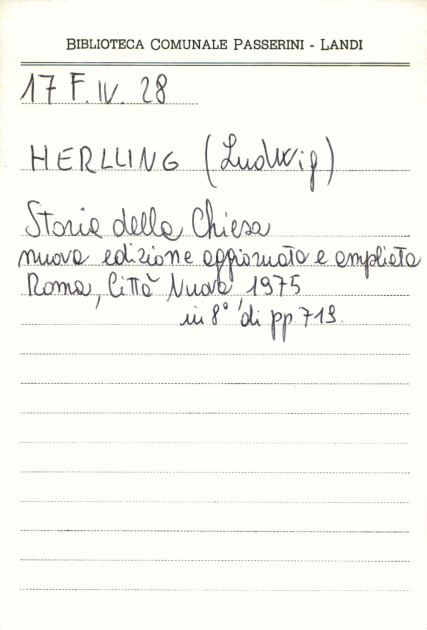 BIBLIOTECA COMUNALE PASSERINI - LANDI
17 F. IV. 28
HERLLING (Ludwig)
Storia della Chiesa
nuova edizione aggiornata e ampliata
Roma, Città Nuova, 1975
in 8° di pp 719.